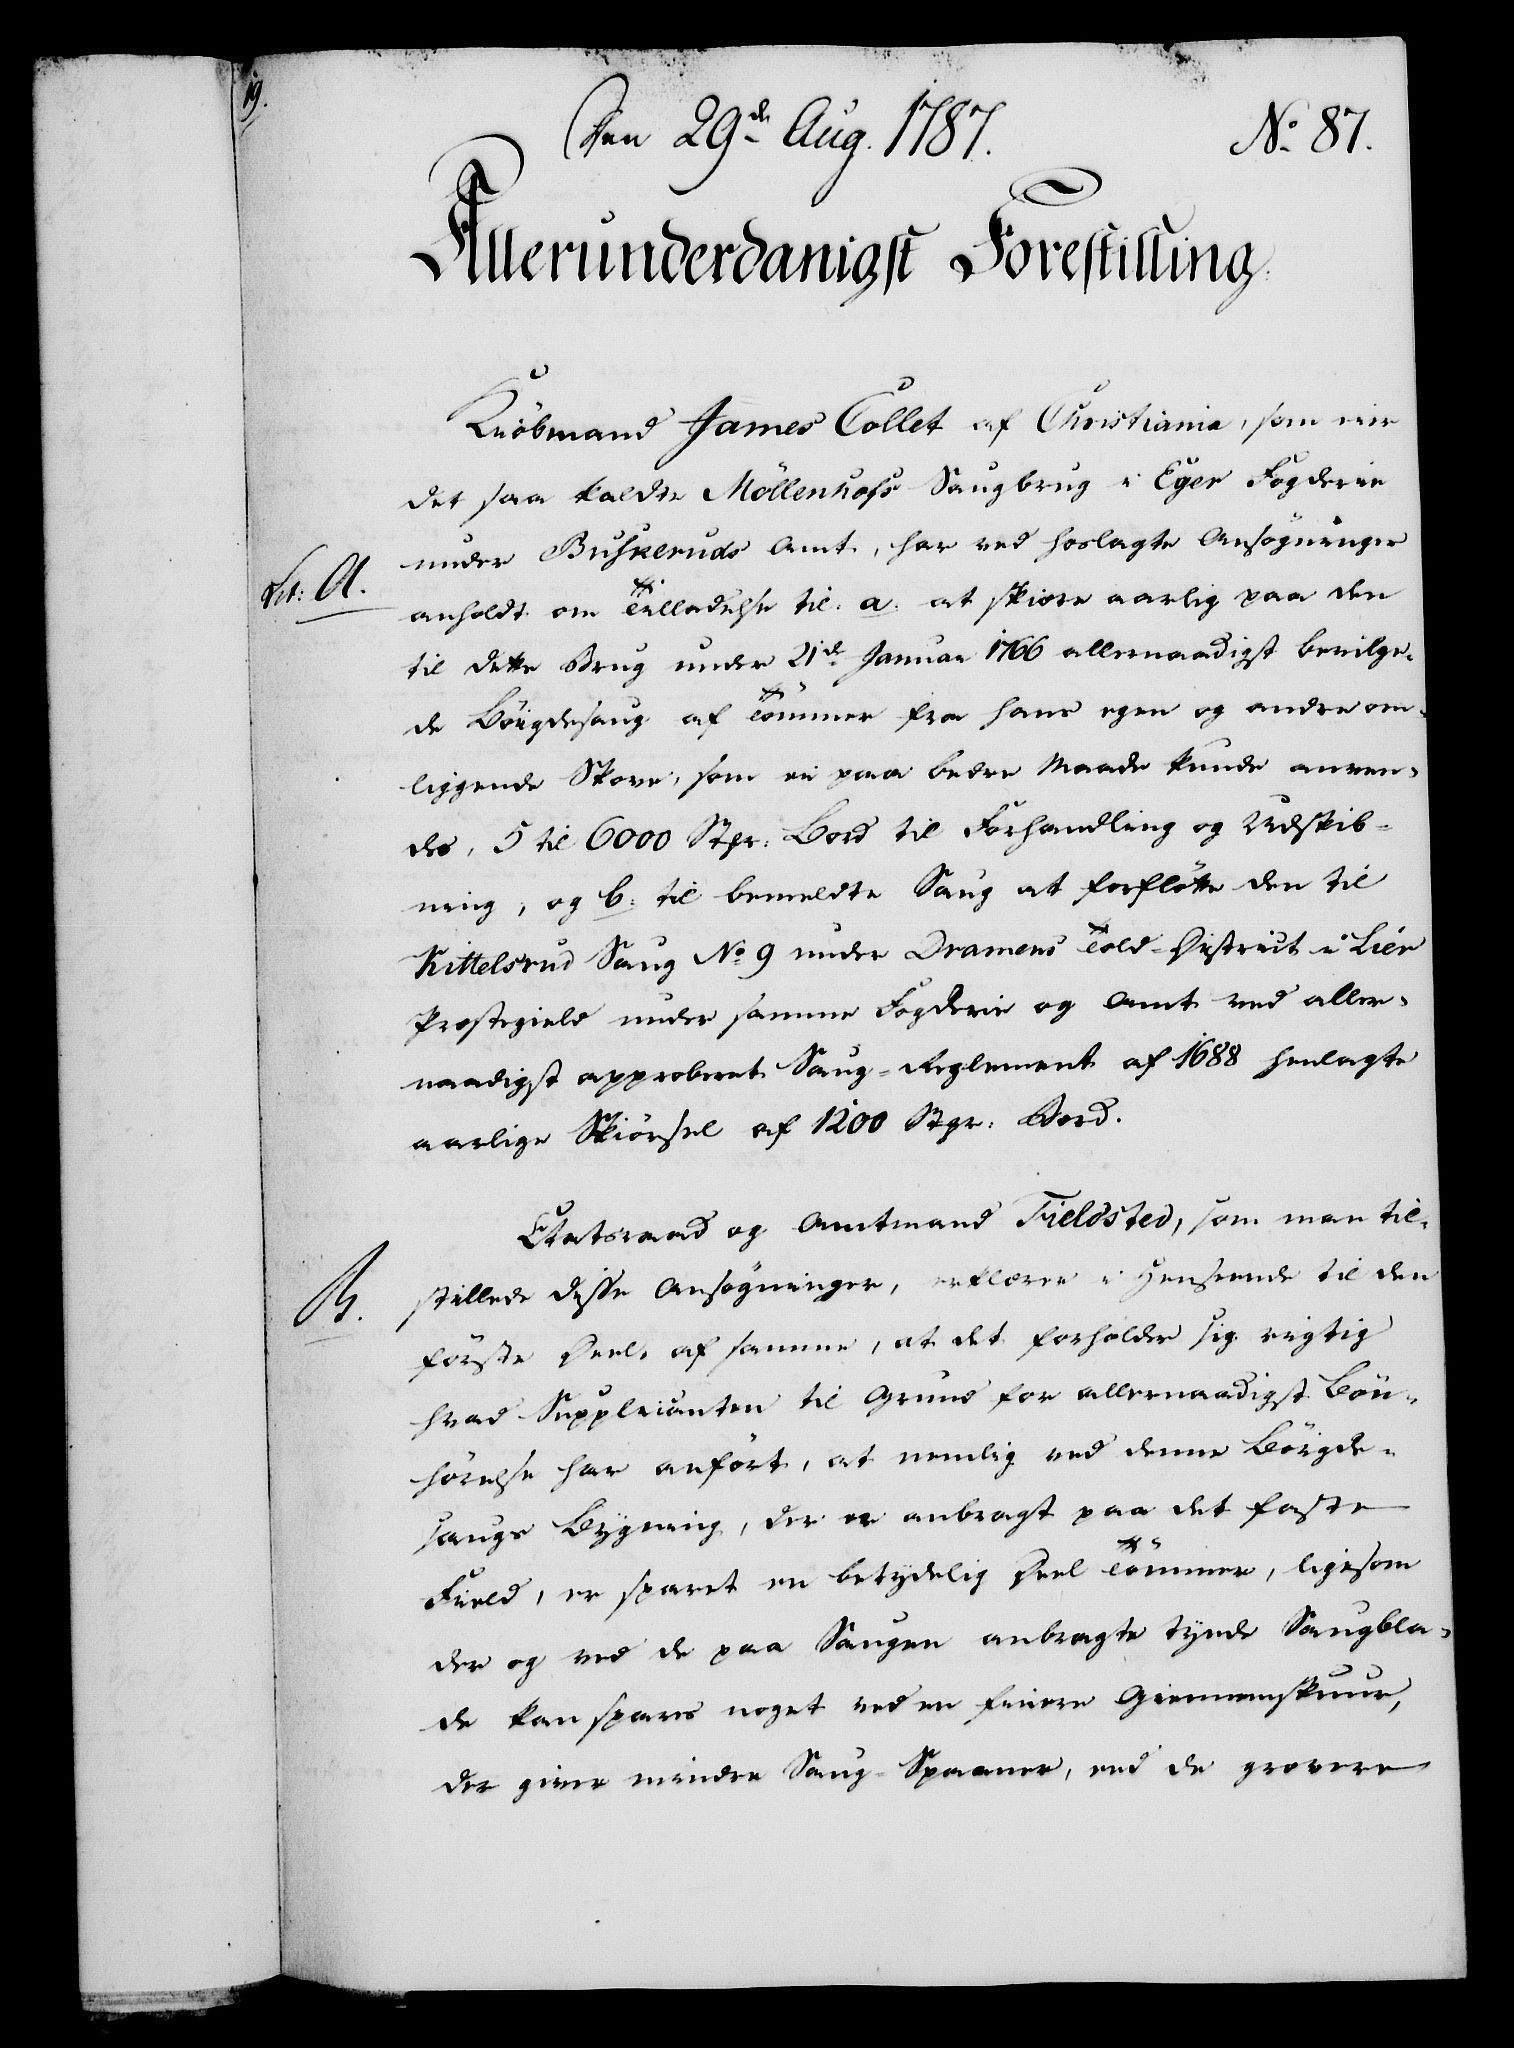 19.
Den 29de Aug. 1787.
No. 87.
Allerunderdanigst Forestilling.
Kiöbmand James Collet af Christiania, som eier
det saa kaldte Möllenhofs Saugbrug i Eger Fogderie
under Buskeruds Amt, har ved hoslagte Ansögninger
Lit: A.
anholdt om Tilladelse til: a. at skiære aarlig paa den
til dette Brug under 21de Januar 1766 allernaadigst bevilge-
de Böigdesaug af Tömmer fra hans egen og andre om-
liggende Skove, som ei paa bedre Maade kunde anven-
des, 5 til 6000 Stpr: Bord til Forhandling og Udskib-
ning, og b: til bemeldte Saug at forflötte den til
Kittelsrud Saug No. 9 under Dramens Told-District i Liér
Præstegield under samme Fogderie og Amt ved aller-
naadigst approberet Saug-Reglement af 1688 henlagte
aarlige Skiörsel af 1200 Stpr: Bord.
Etatsraad og Amtmand Fieldsted, som man til-
B.
stillede disse Ansögninger, erklærer i Henseende til den
förste Deel af samme, at det forholder sig rigtig
hvad Supplicanten til Grund for allernaadigst Bön-
hörelse har anfört, at nemlig ved denne Böigde-
saugs Bygning, der er anbragt paa det faste
Field, er sparet en betydelig Deel Tömmer, ligesom
der og ved de paa Saugen anbragte tynde Saugbla-
de kan spares noget ved en finere Giennemskuur,
der giver mindre Saug-Spaaner, end de grovere